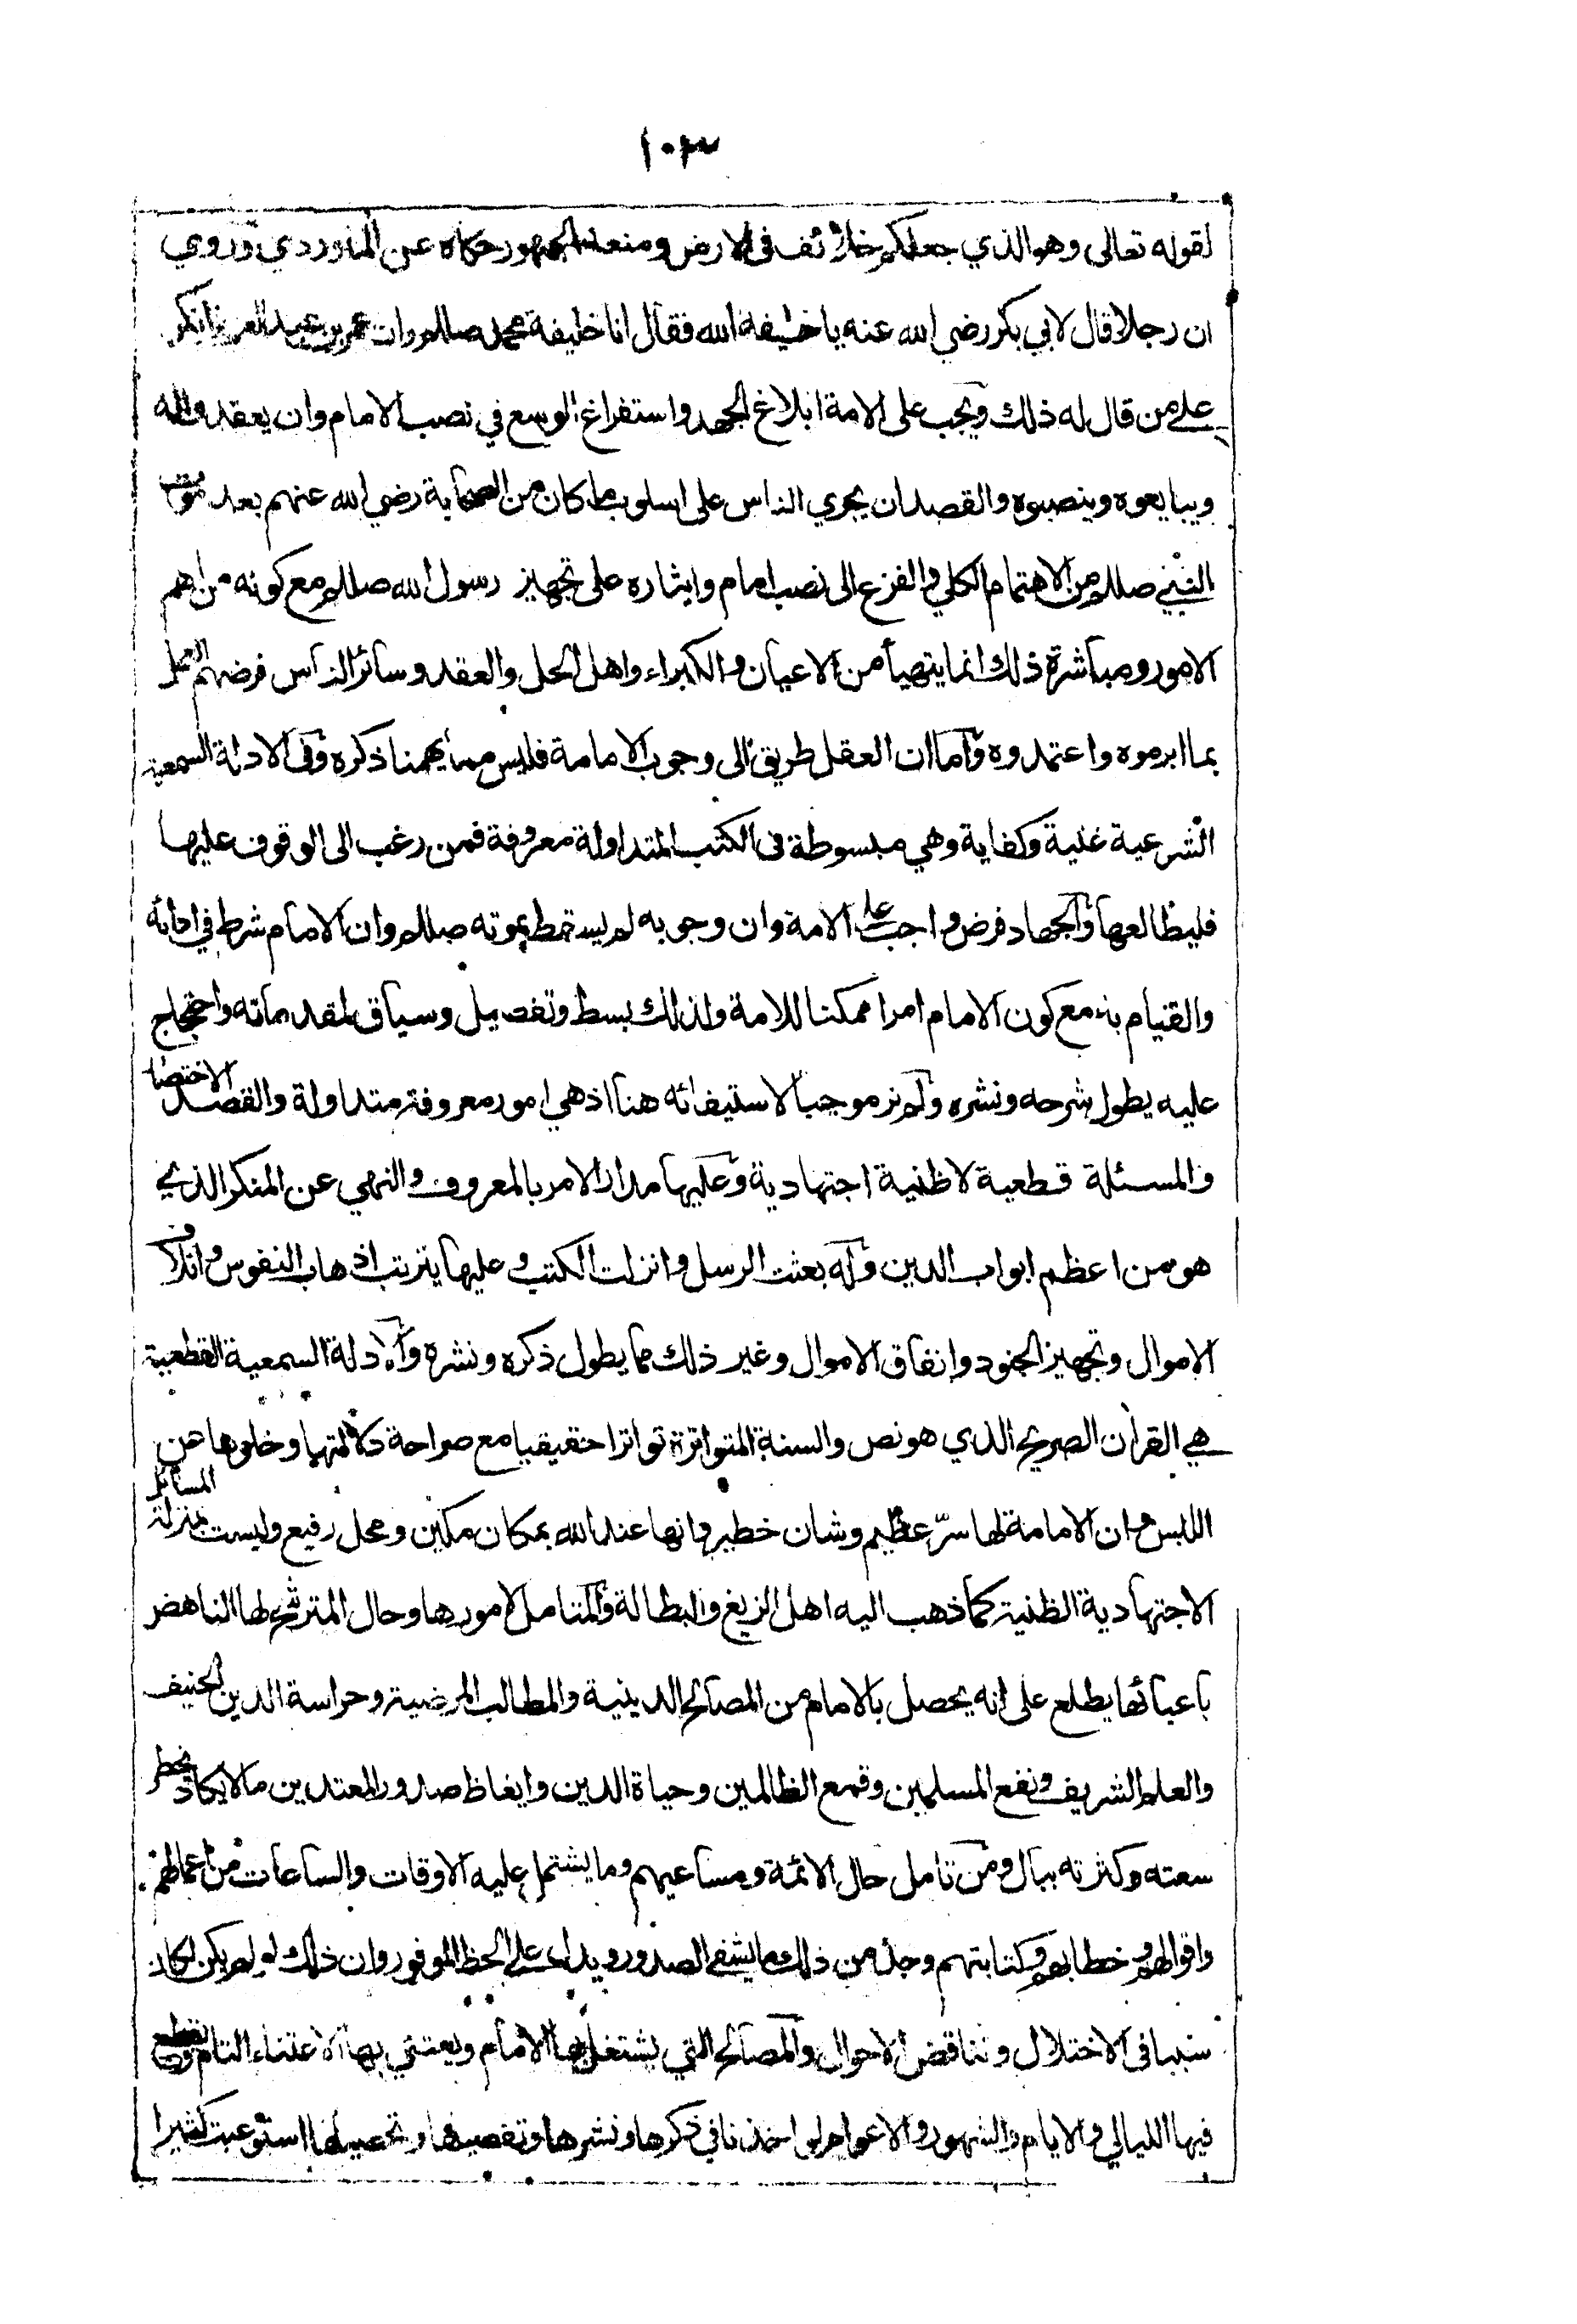 ١٠٣
لقوله تعالى وهو الذي جعلكم خلائف في الارض ومنعه الجمهور حكاه عن الماوردي وروي
ان رجلا قال لابي بكر رضي الله عنه يا خليفة الله فقال انا خليفة محمد صللم وان عمر بن عبد العزيز انكر
على من قال له ذلك ويجب على الامة ابلاغ الجهد واستفراغ الوسع في نصب الامام وان يعقد واله
ويبايعوه وينصبوه والقصد ان يجري الناس على اسلوب ما كان من الصحابة رضي الله عنهم بعد موت
النبي صللم من الاهتمام الكلي والفزع الى نصب امام وايثاره على تجهيز رسول الله صللم مع كونه من اهم
الامور ومباشرة ذلك انما يتهيأ من الاعيان والكبراء واهل الحل والعقد وسائر الناس فرضهم العمل
بما ابرموه واعتمدوه وآما ان العقل طريق الى وجوب الامامة فليس مما يهمنا ذكره وفي الادلة السمعية
الشرعية غنية وكفاية وهي مبسوطة في الكتب المتداولة معروفة فمن رغب الى الوقوف عليها
فليطالعها والجهاد فرض واجب على الامة وان وجوبه لم يسقط بموته صللم وان الامام شرط في ادائه
والقيام به مع كون الامام امرا ممكنا للامة ولذلك بسط وتفصيل وسياق لمقدماته واحتجاج
عليه يطول شرحه ونشره ولم نر موجبا لاستيفائه هنا اذ هي امور معروفة متداولة والقصد الاختصار
والمسئلة قطعية لا ظنية اجتهادية وعليها مدار الامر بالمعروف والنهي عن المنكر الذي
هو من اعظم ابواب الدين وله بعثت الرسل وانزلت الكتب وعليها يترتب اذهاب النفوس واتلاف
الاموال وتجهيز الجنود وانفاق الاموال وغير ذلك مما يطول ذكره ونشره والادلة السمعية القطعية
هي القرآن الصريح الذي هو نص والسنة المتواترة تواترا حقيقيا مع صراحة دلالتهما وخلوها من
اللبس وان الامامة لها سرّ عظيم وشان خطير وانها عند الله بمكان مكين ومحل رفيع وليست بمنزلة المسائل
الاجتهادية الظنية كما ذهب اليه اهل الزيغ والبطالة والمتامل لامورها وحال المترشح لها الناهض
باعبائها يطلع على انه يحصل بالامام من المصالح الدينية والمطالب المرضية وحراسة الدين الحنيف
والعلم الشريف ونفع المسلمين وقمع الظالمين وحياة الدين وايغاظ صدور المعتدين ما لا يكاد يخطر
سعته وكثرته ببال ومن تامل حال الائمة ومساعيهم وما يشتمل عليه الاوقات والساعات من اعمالهم
واقوالهم وخطابهم وكتابتهم وجد من ذلك ما يشفي الصدور ويدل على الحظ الموفور وان ذلك لو لم يكن لكان
سببا في الاختلال وتناقض الاحوال والمصالح التي يشتغل بها الامام ويعتني بها الاعتناء التام ويقطع
فيها الليالي والايام والشهور والاعوام لو اخذنا في ذكرها ونشرها وتفصيلها وتحصيلها استوعبت كثيرا